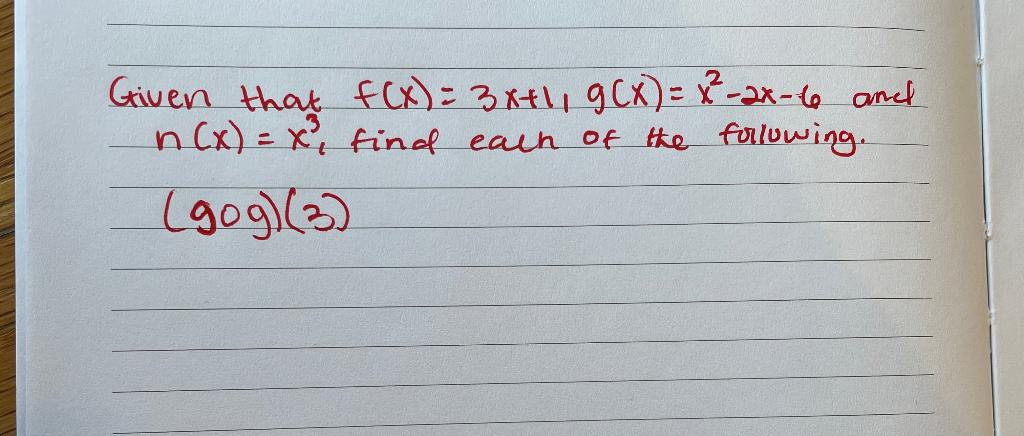 Given that f(x) = 3x+1, g(x) = x²-2x-6 and
n(x) = x³, find each of the following.
(gog)(3)